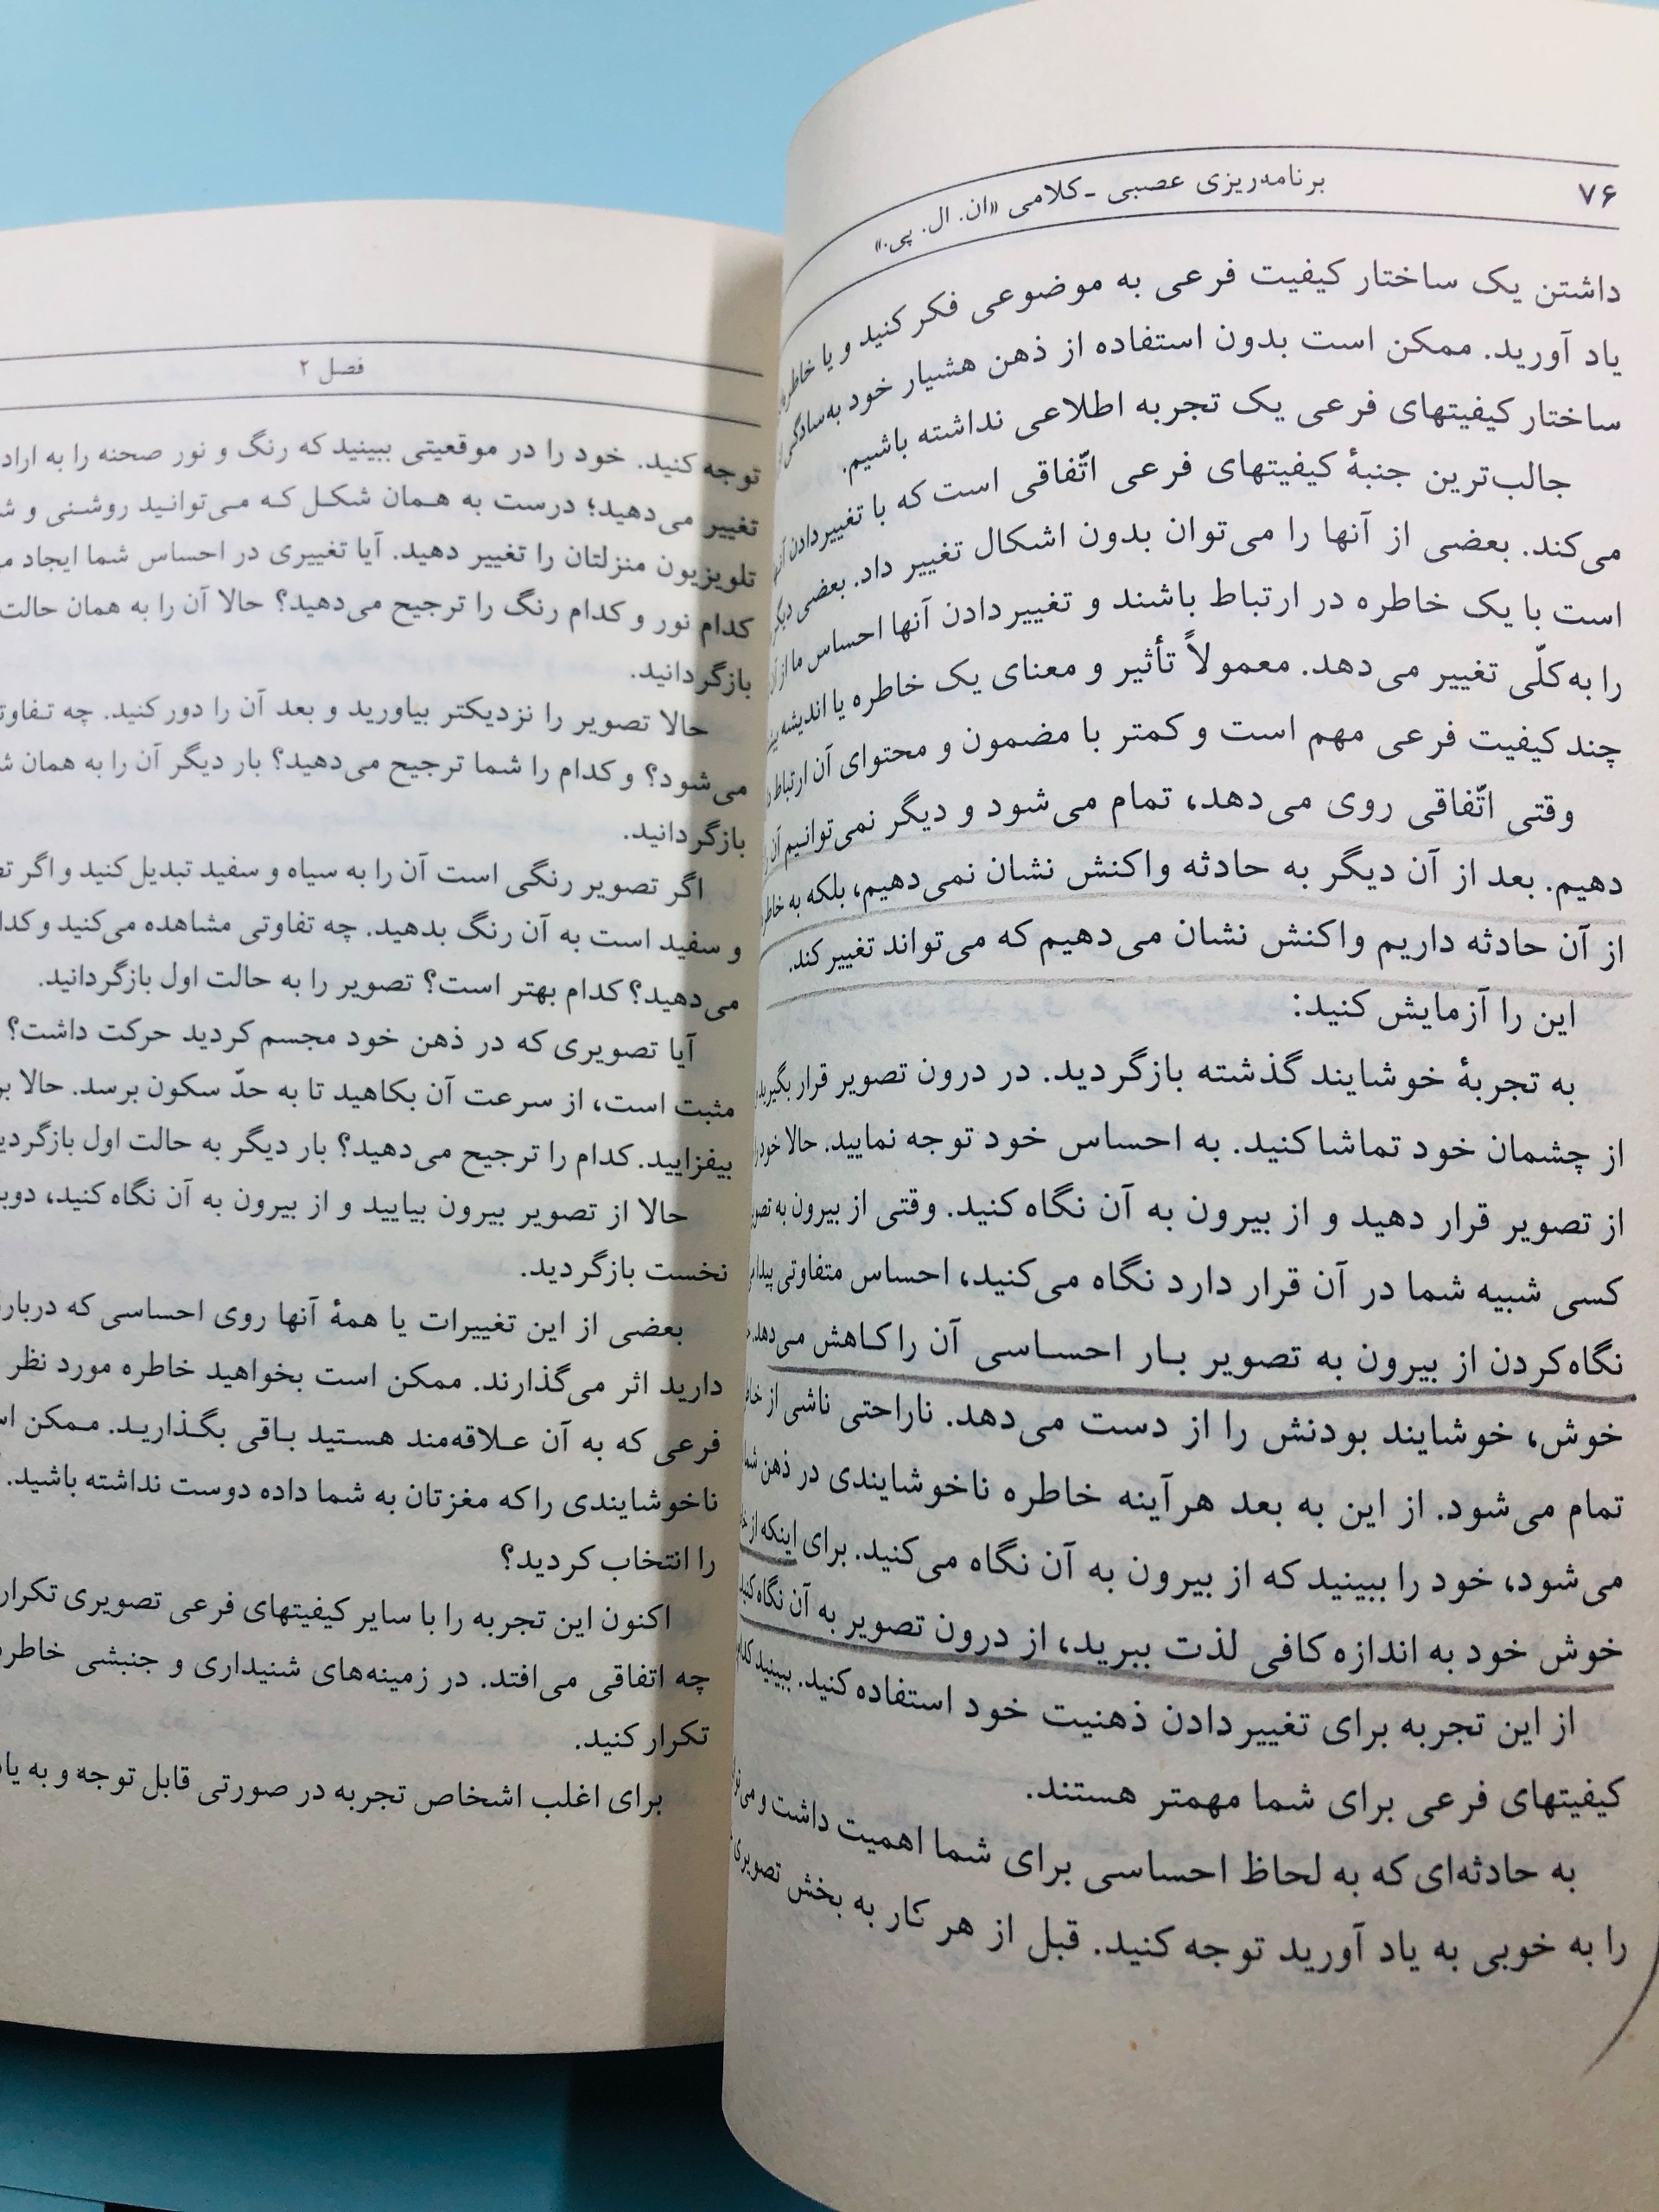 ۷۶
برنامه‌ریزی عصبی - کلامی «ان. ال. پی.»
داشتن یک ساختار کیفیت فرعی به موضوعی فکر کنید و یا
یاد آورید. ممکن است بدون استفاده از ذهن هشیار خود به‌سادگی
ساختار کیفیتهای فرعی یک تجربه اطلاعی نداشته باشیم.
جالب‌ترین جنبهٔ کیفیتهای فرعی اتّفاقی است که با تغییر دادن
می‌کند. بعضی از آنها را می‌توان بدون اشکال تغییر داد. بعضی
است با یک خاطره در ارتباط باشند و تغییر دادن آنها احساس ما از
را به کلّی تغییر می‌دهد. معمولاً تأثیر و معنای یک خاطره یا اندیشه
چند کیفیت فرعی مهم است و کمتر با مضمون و محتوای آن ارتباط
وقتی اتّفاقی روی می‌دهد، تمام می‌شود و دیگر نمی‌توانیم آن
دهیم. بعد از آن دیگر به حادثه واکنش نشان نمی‌دهیم، بلکه به
از آن حادثه داریم واکنش نشان می‌دهیم که می‌تواند تغییر کند.
این را آزمایش کنید:
به تجربهٔ خوشایند گذشته بازگردید. در درون تصویر قرار بگیرید
از چشمان خود تماشا کنید. به احساس خود توجه نمایید. حالا
از تصویر قرار دهید و از بیرون به آن نگاه کنید. وقتی از بیرون به
کسی شبیه شما در آن قرار دارد نگاه می‌کنید، احساس متفاوتی
نگاه کردن از بیرون به تصویر بـار احسـاسی آن را کـاهش مـی‌دهد.
خوش، خوشایند بودنش را از دست می‌دهد. ناراحتی ناشی از
تمام می‌شود. از این به بعد هرآینه خاطره ناخوشایندی در ذهن شما
می‌شود، خود را ببینید که از بیرون به آن نگاه می‌کنید. برای اینکه از
خوش خود به اندازه کافی لذت ببرید، از درون تصویر به آن نگاه کنید
از این تجربه برای تغییر دادن ذهنیت خود استفاده کنید. ببینید
کیفیتهای فرعی برای شما مهمتر هستند.
به حادثه‌ای که به لحاظ احساسی برای شما اهمیت داشت و
را به خوبی به یاد آورید توجه کنید. قبل از هر کار به بخش تصویری
فصل ۲
توجه کنید. خود را در موقعیتی ببینید که رنگ و نور صحنه را به
تغییر می‌دهید؛ درست به هـمان شکـل کـه مـی‌توانـید روشـنی و
تلویزیون منزلتان را تغییر دهید. آیا تغییری در احساس شما ایجاد
کدام نور و کدام رنگ را ترجیح می‌دهید؟ حالا آن را به همان حالت
بازگردانید.
حالا تصویر را نزدیکتر بیاورید و بعد آن را دور کنید. چه
می‌شود؟ و کدام را شما ترجیح می‌دهید؟ بار دیگر آن را به همان
بازگردانید.
اگر تصویر رنگی است آن را به سیاه و سفید تبدیل کنید و اگر
و سفید است به آن رنگ بدهید. چه تفاوتی مشاهده می‌کنید و
می‌دهید؟ کدام بهتر است؟ تصویر را به حالت اول بازگردانید.
آیا تصویری که در ذهن خود مجسم کردید حرکت داشت؟
مثبت است، از سرعت آن بکاهید تا به حدّ سکون برسد. حالا
بیفزایید. کدام را ترجیح می‌دهید؟ بار دیگر به حالت اول
حالا از تصویر بیرون بیایید و از بیرون به آن نگاه کنید،
نخست بازگردید.
بعضی از این تغییرات یا همهٔ آنها روی احساسی که
دارید اثر می‌گذارند. ممکن است بخواهید خاطره مورد نظر
فرعی که به آن عـلاقه‌مند هسـتید بـاقی بگـذاریـد. مـمکن
ناخوشایندی را که مغزتان به شما داده دوست نداشته باشید.
را انتخاب کردید؟
اکنون این تجربه را با سایر کیفیتهای فرعی تصویری تکرار
چه اتفاقی می‌افتد. در زمینه‌های شنیداری و جنبشی
تکرار کنید.
برای اغلب اشخاص تجربه در صورتی قابل توجه و به